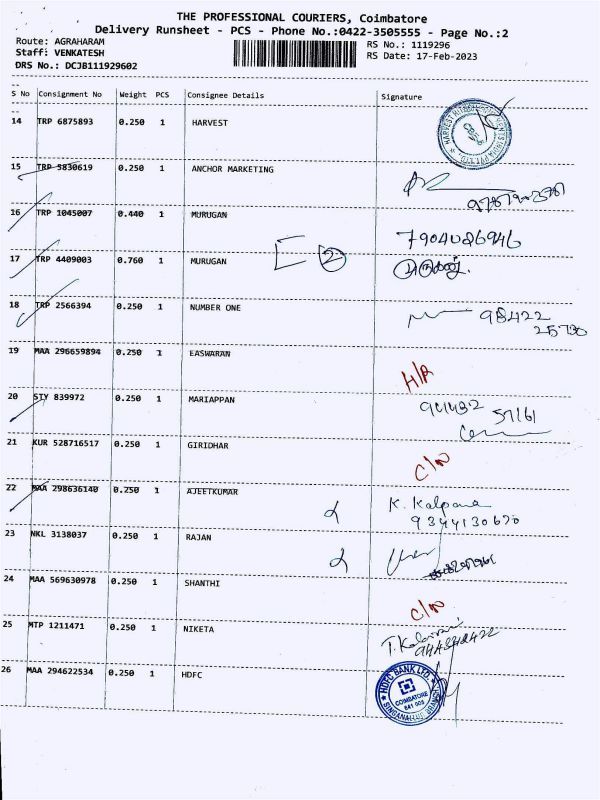 THE PROFESSIONAL COURIERS, Coimbatore
Delivery Runsheet - PCS - Phone No.:0422-3505555 - Page No.:2
Route: AGRAHARAM RS No.: 1119296
Staff: VENKATESH RS Date: 17-Feb-2023
DRS No.: DCJB111929602
S No Consignment No Weight PCS Consignee Details Signature
14 TRP 6875893 0.250 1 HARVEST
15 TRP 5830619 0.250 1 ANCHOR MARKETING
16 TRP 1045007 0.440 1 MURUGAN 7904086946
17 TRP 4409003 0.760 1 MURUGAN 2 முருகன்.
18 TRP 2566394 0.250 1 NUMBER ONE 98422
25730
19 MAA 296659894 0.250 1 EASWARAN H/R
20 STY 839972 0.250 1 MARIAPPAN 94432 57161
21 KUR 528716517 0.250 1 GIRIDHAR C/N
22 MAA 298636140 0.250 1 AJEETKUMAR K. Kalpana
9344130670
23 NKL 3138037 0.250 1 RAJAN
24 MAA 569630978 0.250 1 SHANTHI C/N
25 MTP 1211471 0.250 1 NIKETA
26 MAA 294622534 0.250 1 HDFC HDFC BANK LTD.
COIMBATORE
641 005